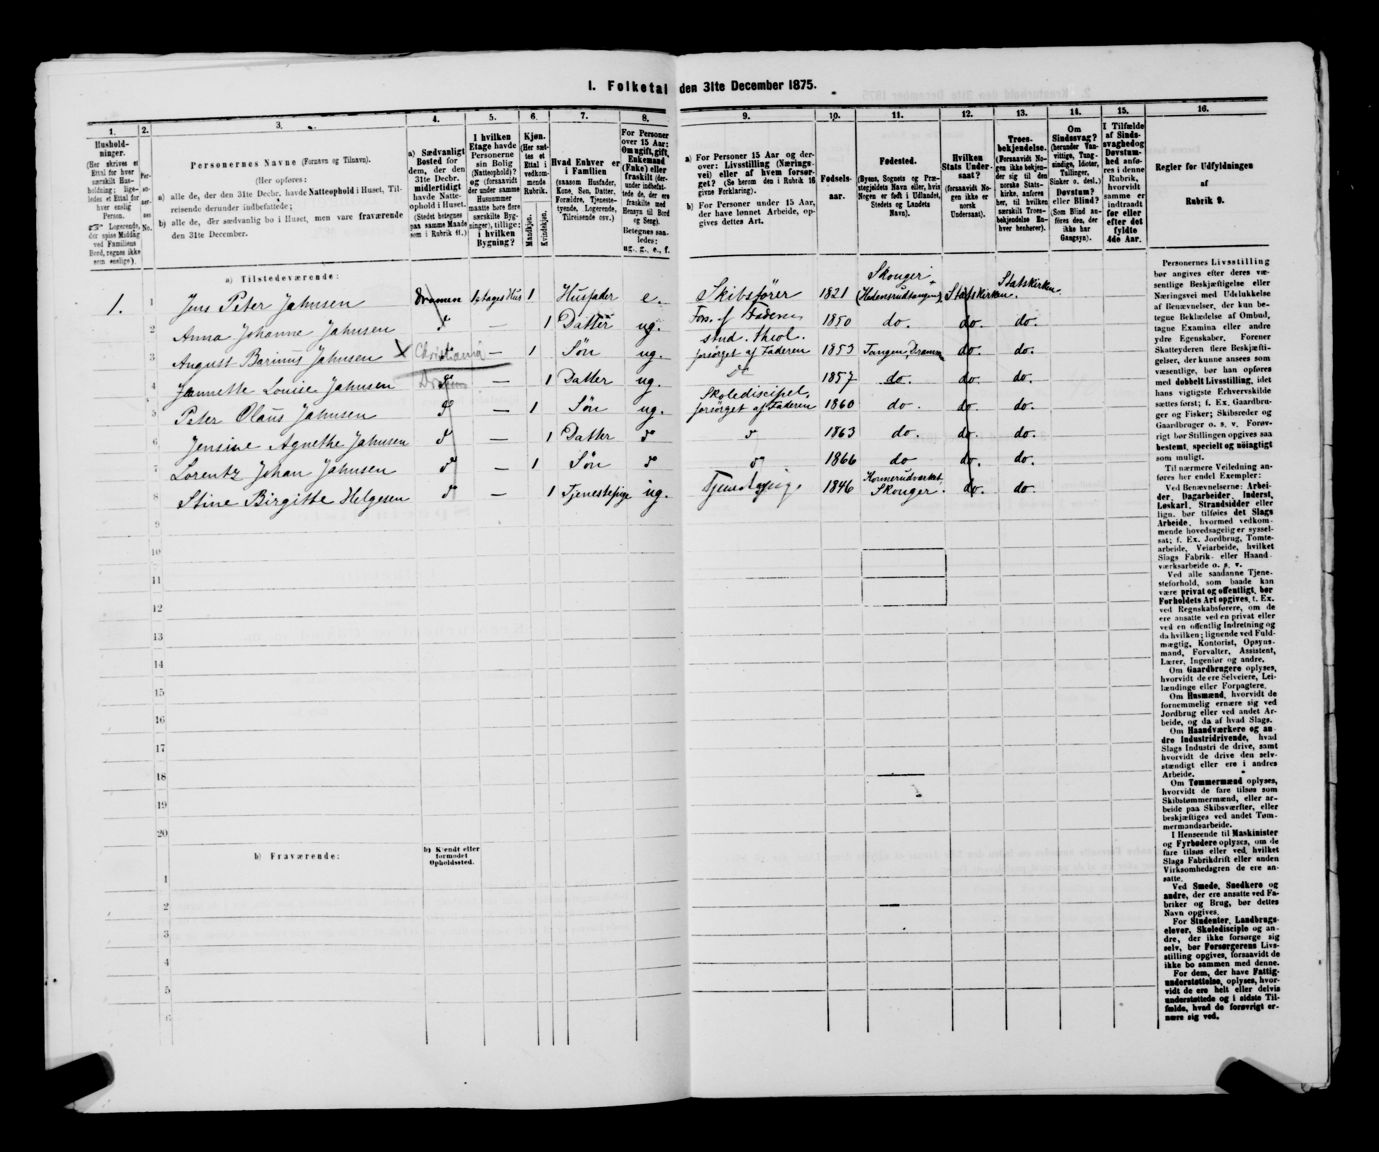 I. Folketal den 31te December 1875.
1.
Husholdninger.
(Her skrives et
Ettal for hver
særskilt Husholdning;
ligeledes et Ettal for
hver enslig
Person.
Logerende,
der spise Middag
ved Familiens
Bord, regnes ikke
som enslige).
2.
Personernes
No.
3.
Personernes Navne (Fornavn og Tilnavn).
(Her opføres:
a) alle de, der den 31te Decbr. havde Natteophold i Huset, Tilreisende
derunder indbefattede;
b) alle de, der sædvanlig bo i Huset, men vare fraværende
den 31te December.
4.
a) Sædvanligt
Bosted for
dem, der den
31te Decbr.
midlertidigt
havde Natteophold
i Huset.
(Stedet betegnes
paa samme Maade
som i Rubrik 11.)
5.
I hvilken
Etage havde
Personerne
sin Bolig
(Natteophold)?
og (forsaavidt
der under samme
Husnummer
maatte høre flere
særskilte Bygninger),
tillige:
i hvilken
Bygning?
6.
Kjøn.
(Her sættes
et
Ettal i
vedkommende
Rubrik.
Mandkjøn.
Kvindekjøn.
7.
Hvad Enhver er
i Familien
(saasom Husfader,
Kone, Søn, Datter,
Forældre, Tjenestetyende,
Logerende,
Tilreisende osv.)
8.
For Personer
over 15 Aar:
Om ugift, gift,
Enkemand
(Enke) eller
fraskilt (derunder
indbefattede
de, der ere
fraskilte med
Hensyn til Bord
og Seng).
Betegnes saaledes:
ug., g., e., f.
9.
a) For Personer 15 Aar og derover:
Livsstilling (Næringsvei)
eller af hvem forsørget?
(Se herom den i Rubrik 16
givne Forklaring).
b) For Personer under 15 Aar,
der have lønnet Arbeide, opgives
dettes Art.
10.
Fødselsaar.
11.
Fødested.
(Byens, Sognets og Præstegjeldets
Navn eller, hvis
Nogen er født i Udlandet,
Stedets og Landets
Navn).
12.
Hvilken
Stats Undersaat?
(forsaavidt Nogen
ikke er
norsk
Undersaat).
13.
Troesbekjendelse.
(Forsaavidt Nogen
ikke bekjender
sig til den
norske Statskirke,
anføres
her, til hvilken
særskilt Troesbekjendelse
Enhver
henhører).
14.
Om
Sindssvag?
(herunder Vanvittige,
Tungsindige,
Idioter,
Tullinger,
Sinker o. desl.)
Døvstum?
eller Blind?
(Som Blind anføres
den, der
ikke har
Gangsyn).
15.
I Tilfælde
af Sindssvaghed
og
Døvstumhed
anføres
i denne
Rubrik,
hvorvidt
samme er
indtraadt
før eller
efter det
fyldte
4de Aar.
16.
Regler for Udfyldningen
af
Rubrik 9.
a) Tilstedeværende:
1. 1 Jens Peter Jahnsen Dramen 1 etages Hus 1 Husfader e. Skibsfører 1821 Skouger (Hedensrudtangen) Statskirken. Statskirken
2 Anna Johanne Jahnsen 1 Datter ug. Fors. af Faderen 1850 do. do. do.
3 August Barinus Jahnsen Christiania — 1 Søn ug. stud. theol. forsørget af Faderen 1853 Tangen, Dramm do. do.
4 Jannette Louise Jahnsen — 1 Datter ug. 1857 do. do. do.
5 Peter Olaus Jahnsen — 1 Søn ug. Skolediscipel, forsørget af Faderen 1860 do. do. do.
6 Jensine Agnethe Jahnsen — 1 Datter 1863 do. do. do.
7 Lorentz Johan Jahnsen — 1 Søn 1866 do do. do.
8 Stine Birgitte Helgesen — 1 Tjenestepige ug. Tjenestepige 1846 Skouger. do. do.
9
10
11
12
13
14
15
16
17
18
19
20
b) Fraværende:
b) Kjendt eller
formodet
Opholdssted.
1
2
3
4
5
6
Personernes Livsstilling
bør angives efter deres væsentlige
Beskjæftigelse eller
Næringsvei med Udelukkelse
af Benævnelser, der kun betegne
Beklædelse af Ombud,
tagne Examina eller andre
ydre Egenskaber. Forener
Skatteyderen flere Beskjæftigelser,
der kunne ansees som
væsentlige, bør han opføres
med dobbelt Livsstilling, idet
hans vigtigste Erhvervskilde
sættes først; f. Ex. Gaardbruger
og Fisker; Skibsreder og
Gaardbruger o. s. v. Forøvrigt
bør Stillingen opgives saa
bestemt, specielt og nøiagtigt
som muligt.
Til nærmere Veiledning anføres
her endel Exempler:
Ved Benævnelserne: Arbeider,
Dagarbeider, Inderst,
Løskarl, Strandsidder eller
lign. bør tilføies det Slags
Arbeide, hvormed vedkommende
hovedsagelig er sysselsat;
f. Ex. Jordbrug, Tomtearbeide,
Veiarbeide, hvilket
Slags Fabrik- eller Haandværksarbeide
o. s. v.
Ved alle saadanne Tjenesteforhold,
som baade kan
være privat og offentligt, bør
Forholdets Art opgives, f. Ex.
ved Regnskabsførere, om de
ere ansatte ved en privat eller
ved en offentlig Indretning og
da hvilken; lignende ved Fuldmægtig,
Kontorist, Opsynsmand,
Forvalter, Assistent,
Lærer, Ingeniør og andre.
Om Gaardbrugere oplyses,
hvorvidt de ere Selveiere, Leilændinge
eller Forpagtere.
Om Husmænd, hvorvidt de
fornemmelig ernære sig ved
Jordbrug eller ved andet Arbeide,
og da af hvad Slags.
Om Haandværkere og andre
Industridrivende, hvad
Slags Industri de drive, samt
hvorvidt de drive den selvstændigt
eller ere i andres
Arbeide.
Om Tømmermænd oplyses,
hvorvidt de fare tilsøs som
Skibstømmermænd, eller arbeide
paa Skibsværfter, eller
beskjæftiges ved andet Tømmermandsarbeide.
I Henseende til Maskinister
og Fyrbødere oplyses, om de
fare tilsøs eller ved, hvilket
Slags Fabrikdrift eller anden
Virksomhedsgren de ere ansatte.
Ved Smede, Snedkere og
andre, der ere ansatte ved Fabriker
og Brug, bør dettes
Navn opgives.
For Studenter, Landbrugselever,
Skoledisciple og andre,
der ikke forsørge sig
selv, bør Forsørgerens Livsstilling
opgives, forsaavidt de
ikke bo sammen med denne.
For dem, der have Fattigunderstøttelse,
oplyses, hvorvidt
de ere helt eller delvis
understøttede og i sidste Tilfælde,
hvad de forøvrigt ernære
sig ved.